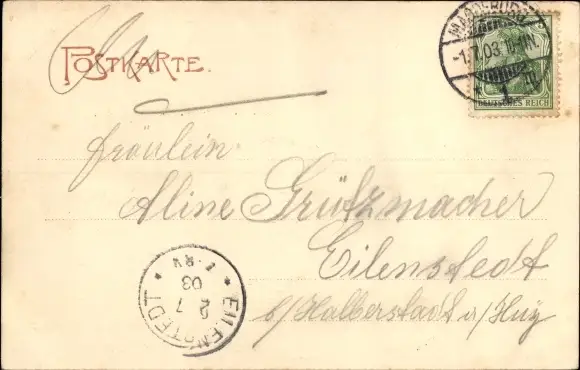 POSTKARTE.
MAGDEBURG
-1.7.03.10-11N.
DEUTSCHES REICH
Fräulein
Aline Grützmacher
Eilenstedt
b/Halberstadt a/Huy
EILENSTEDT
2 7
03